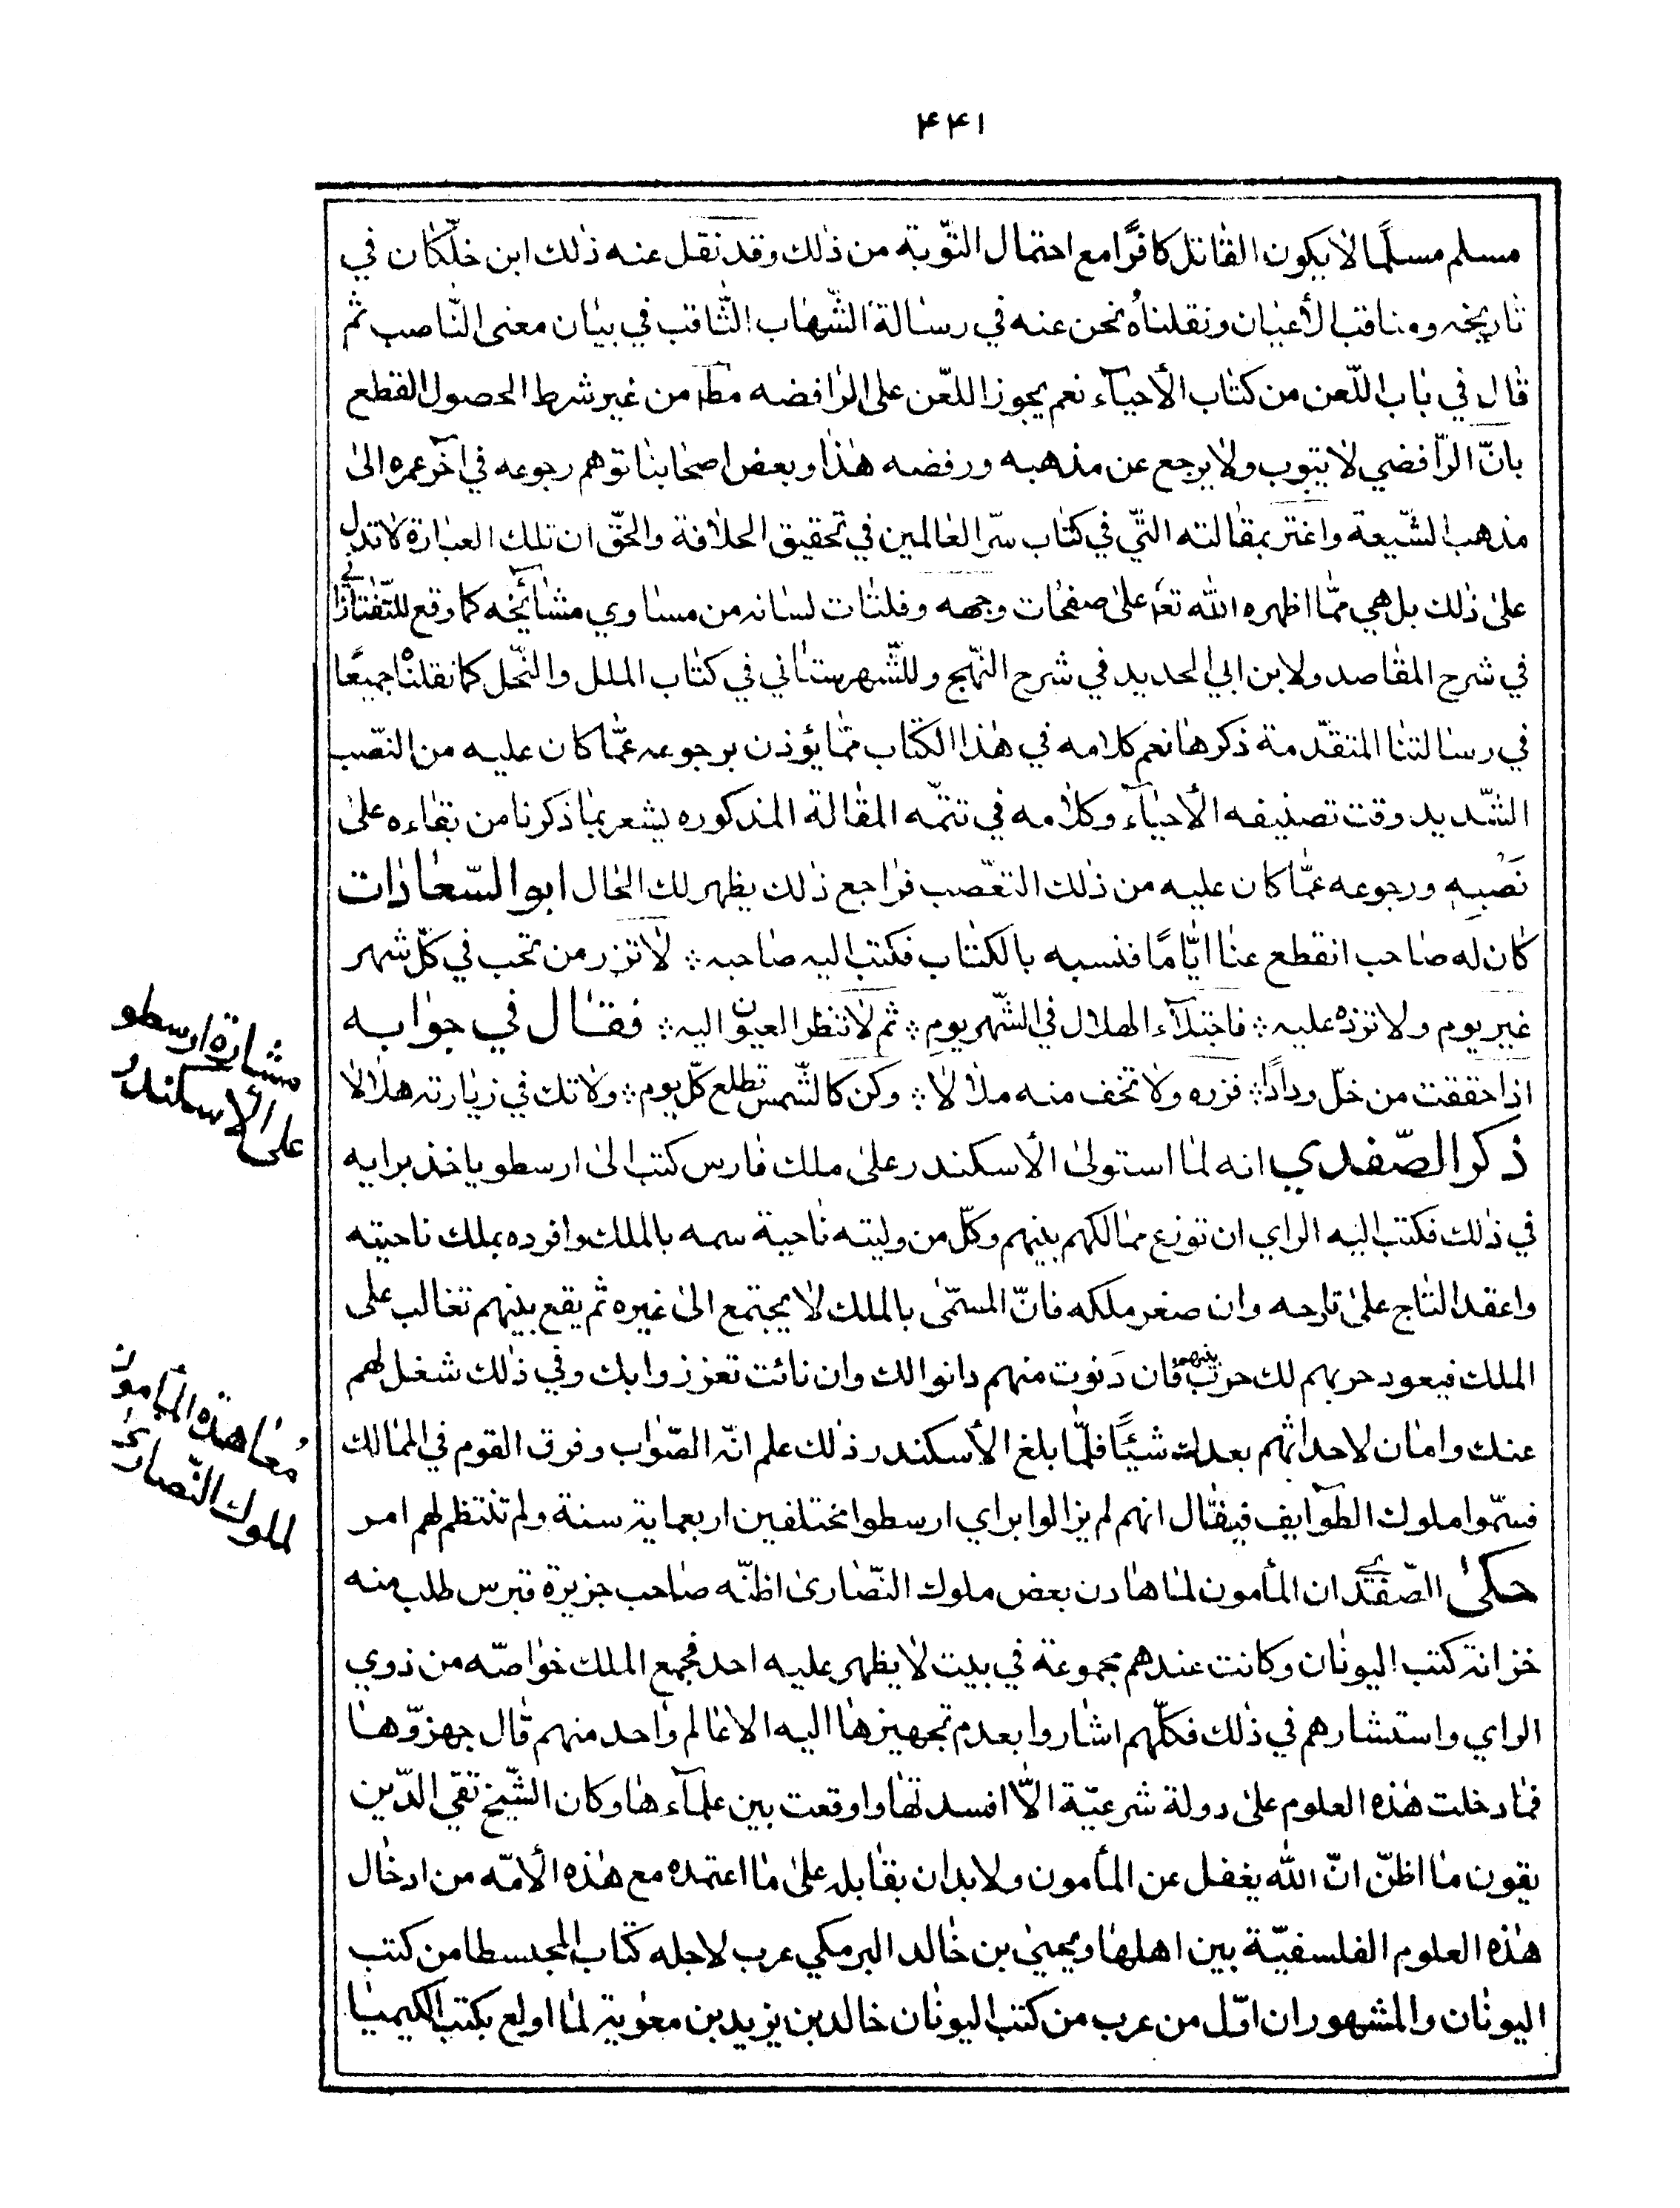 ۴۴۱
مسلم مسلمًا لا يكون القاتل كافرًا مع احتمال التّوبة من ذلك وقد نقل عنه ذلك ابن خلّكان في
تاريخه ومناقب الأعيان ونقلناه نحن عنه في رسالة الشّهاب الثّاقب في بيان معنى النّاصب ثم
قال في باب اللّعن من كتاب الأحيآء نعم يجوز اللّعن على الرّافضه مط من غير شرط الحصول القطع
بانّ الرّافضي لا يتوب ولا يرجع عن مذهبه ورفضه هذا وبعض اصحابنا توهم رجوعه في آخر عمره الى
مذهب الشّيعة واغتر بمقالته التّي في كتاب سرّ العالمين في تحقيق الخلافة والحّق ان تلك العبارة لا تدل
على ذلك بل هي ممّا اظهره الله تعا على صفحات وجهه وفلتات لسانه من مساوي مشائخه كما وقع للتّفتازاني
في شرح المقاصد ولابن ابي الحديد في شرح النّهج وللشّهرستاني في كتاب الملل والنّحل كما نقلنا جميعًا
في رسالتنا المتقدّمة ذكرها نعم كلامه في هذا الكتاب ممّا يؤذن برجوعه عمّا كان عليه من النصّب
الشّديد وقت تصنيفه الأحيآء وكلامه في تتمّه المقالة المذكوره يشعر بما ذكرنا من بقاءه على
نَصْبِهِ ورجوعه عمّا كان عليه من ذلك التعّصب فراجع ذلك يظهر لك الحال ابو السّعادات
كان له صاحب انقطع عنا ايّامًا فنسبه بالكتاب فكتب اليه صاحبه ∴ لا تزر من تحب في كلّ شهر
غير يوم ولا تزده عليه ∴ فاجتلآء الهلال في الشّهر يوم ∴ ثم لا تنظر العيون اليه ∴ فقال في جوابه
اذا حققت من خلّ ودادًا ∴ فزره ولا تخف منه ملالا ∴ وكن كالشّمس تطلع كلّ يوم ∴ ولا تك في زيارته هلالا
ذكر الصّفدي انه لما استولى الأسكندر على ملك فارس كتب الى ارسطو ياخذ برايه
في ذلك فكتب اليه الراي ان توزع ممالكهم بينهم وكلّ من وليته ناحية سمه بالملك وافرده بملك ناحيته
واعقد التاج على تارحه وان صغر ملكه فانّ المسمّى بالملك لا يجتمع الى غيره ثم يقع بينهم تغالب على
الملك فيعود حربهم لك حرب بينهم فان دَنوت منهم دانوا لك وان نائت تعززوا بك وفي ذلك شغل لهم
عنك وامان لاحداثهم بعدك شيئًا فلمّا بلغ الأسكندر ذلك علم انّه الصّواب وفرق القوم في الممالك
فسمّوا ملوك الطوآيف فيقال انهم لم يزالوا براي ارسطوا مختلفين اربعماية سنة ولم تنتظم لهم امر
حكى الصّفدي ان المأمون لما هادن بعض ملوك النّصارى اظنّه صاحب جزيرة قبرس طلب منه
خزانة كتب اليونان وكانت عندهم مجموعة في بيت لا يظهر عليه احد فجمع الملك خواصّه من ذوي
الراي واستشارهم في ذلك فكلّهم اشاروا بعدم تجهيزها اليه الا عالم واحد منهم قال جهزوّها
فما دخلت هذه العلوم على دولة شرعيّة الاّ افسدتها واوقعت بين علمآءها وكان الشّيخ تقي الدّين
يقون ما اظنّ انّ الله يغفل عن المأمون ولابد ان يقابله على ما اعتمده مع هذه الأمّه من ادخال
هذه العلوم الفلسفيّة بين اهلها ويحيى بن خالد البرمكي عرب لاجله كتاب المجسطا من كتب
اليونان والمشهور ان اوّل من عرب من كتب اليونان خالد بن يزيد بن معوية لما اولع بكتب الكيميا
مشارة ارسطو
على الأسكندر
مُعاهدة المأمون
لملوك النّصارى